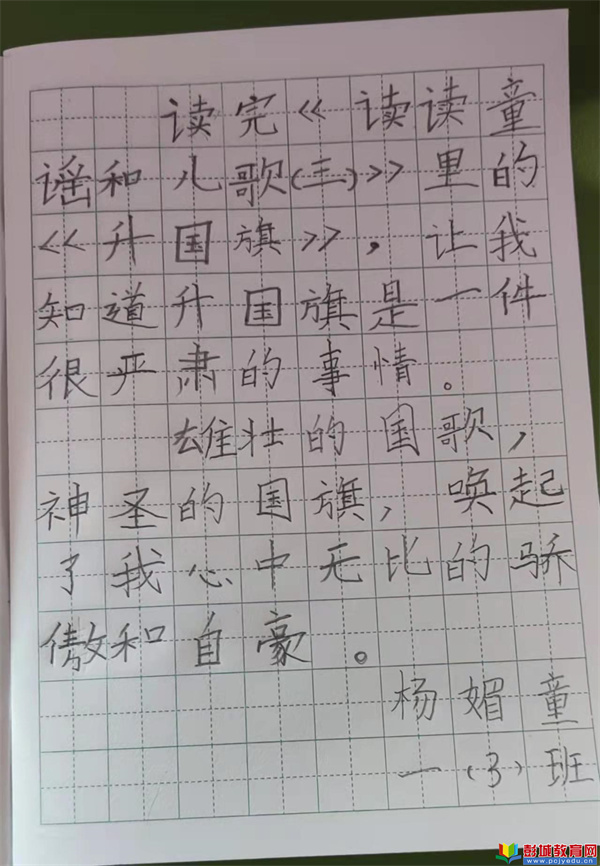 读完《读读童
谣和儿歌(三)》里的
《升国旗》，让我
知道升国旗是一件
很严肃的事情。
雄壮的国歌，
神圣的国旗，唤起
了我心中无比的骄
傲和自豪。
杨媚童
一(3)班
彭城教育网
www.pcjyedu.cn